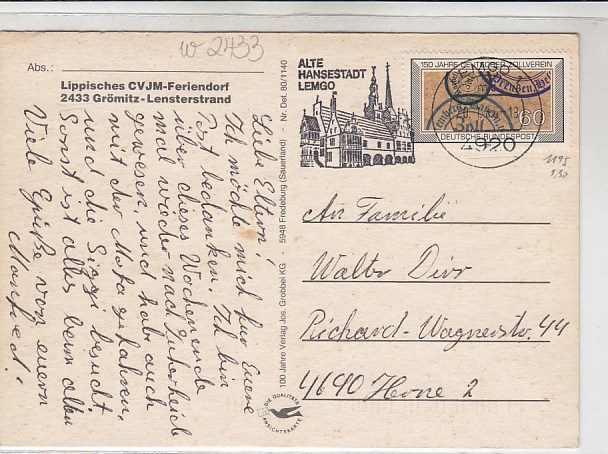 w 2433
Abs.:
Lippisches CVJM-Feriendorf
2433 Grömitz-Lensterstrand
Liebe Eltern!
Ich möchte mich für Euere
Post bedanken. Ich bin
über dieses Wochenende
mal wieder nach
gewesen, und hab auch
mit der gefahren,
und die Siggi besucht.
Sonst ist alles beim alten
Viele Grüße von euern
Manfred!
100 Jahre Verlag Jos. Grobbel KG · 5948 Fredeburg (Sauerland) · Nr. Det. 80/1140
DIE QUALITÄTS ANSICHTSKARTE
ALTE
HANSESTADT
LEMGO
150 JAHRE DEUTSCHER ZOLLVEREIN
60
DEUTSCHE BUNDESPOST
4920
1195
1,30
An Familie
Walter Dirr
Richard-Wagnerstr. 44
4690 Herne 2